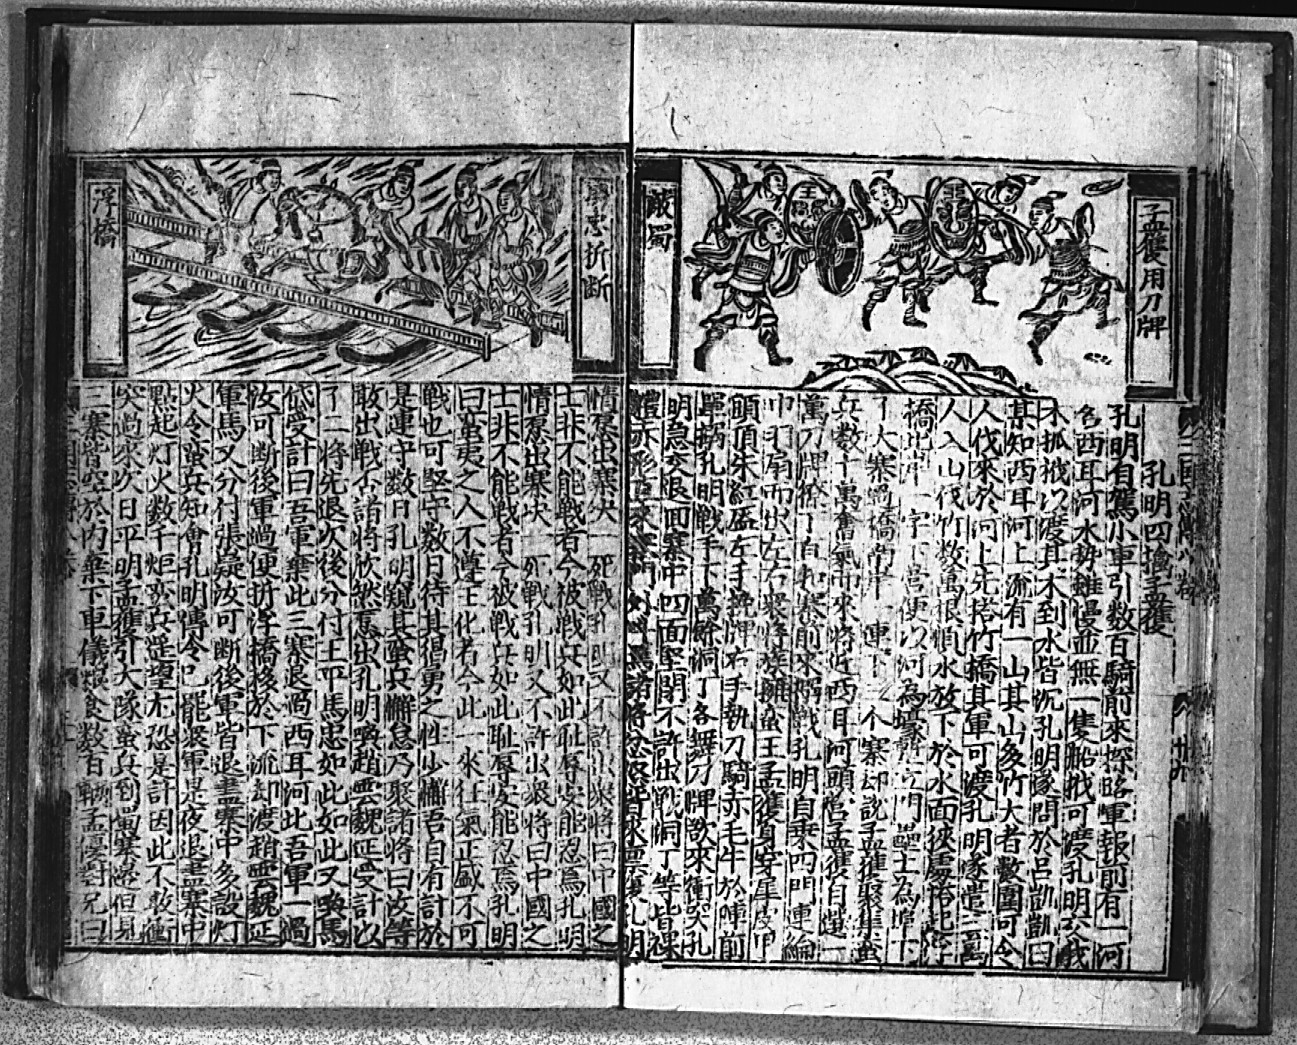 孟獲用刀牌
敵蜀
孔明四擒孟獲
孔明自駕小車引数百騎前來探路軍報前有一河
名西耳河水勢雖慢並無一隻船筏可渡孔明交伐
木孤栰以渡其木到水皆沉孔明遂問於呂凱凱曰
某知西耳河上流有一山其山多竹大者數圍可令
人伐來於河上先搭竹橋其軍可渡孔明遂遣三萬
人入山伐竹数萬根順水放下於水面狹處搭起浮
橋北岸一字下營便以河為壕塹立門壘土為埠下
了大寨將橋南岸一連下三个寨却說孟獲聚集蠻
兵数十萬奮氣而來將近西耳河頭門孟獲自選一
萬刀牌獠丁直扣寨前來搦戰孔明自乘四門車綸
巾羽扇而出左右衆將簇擁蠻王孟獲身穿犀皮甲
頭頂朱紅盔左手挽牌右手執刀騎赤毛牛於陣前
單搦孔明戰手下萬餘洞丁各舞刀牌欲來衝突孔
明急交退回寨中四面堅閉不許出戰洞丁等皆裸
體赤形直來寨門
士非不能戰者今被戰兵如此耻辱安能忍焉孔明
情愿出寨决一死戰孔明又不許出衆將曰中國之
士非不能戰者今被戰兵如此耻辱安能忍焉孔明
曰蛮夷之人不遵王化者今此一來狂氣正盛不可
戰也可堅守数日待其猖勇之性少懶吾自有計於
是連守数日孔明窺其蛮兵懈怠乃聚諸將曰汝等
敢出戰否諸將欣然愿出孔明喚趙雲魏延受計以
了二將先退次後分付王平馬忠如此如此又喚馬
岱受計曰吾軍棄此三寨退過西耳河此吾軍一過
汝可断後軍過便折浮橋移於下流却渡趙雲魏延
軍馬又分付張嶷汝可断後軍皆退盡寨中多設灯
火令蛮兵知會孔明傳令已罷衆軍是夜退盡寨中
點起灯火数千炬蛮兵遥望尤恐是計因此不敢衝
突過來次日平明孟獲引大隊蛮兵到寨邊但見
三寨皆空於內棄下車儀粮食数百輌孟優對兄曰
馬忠折断
浮橋